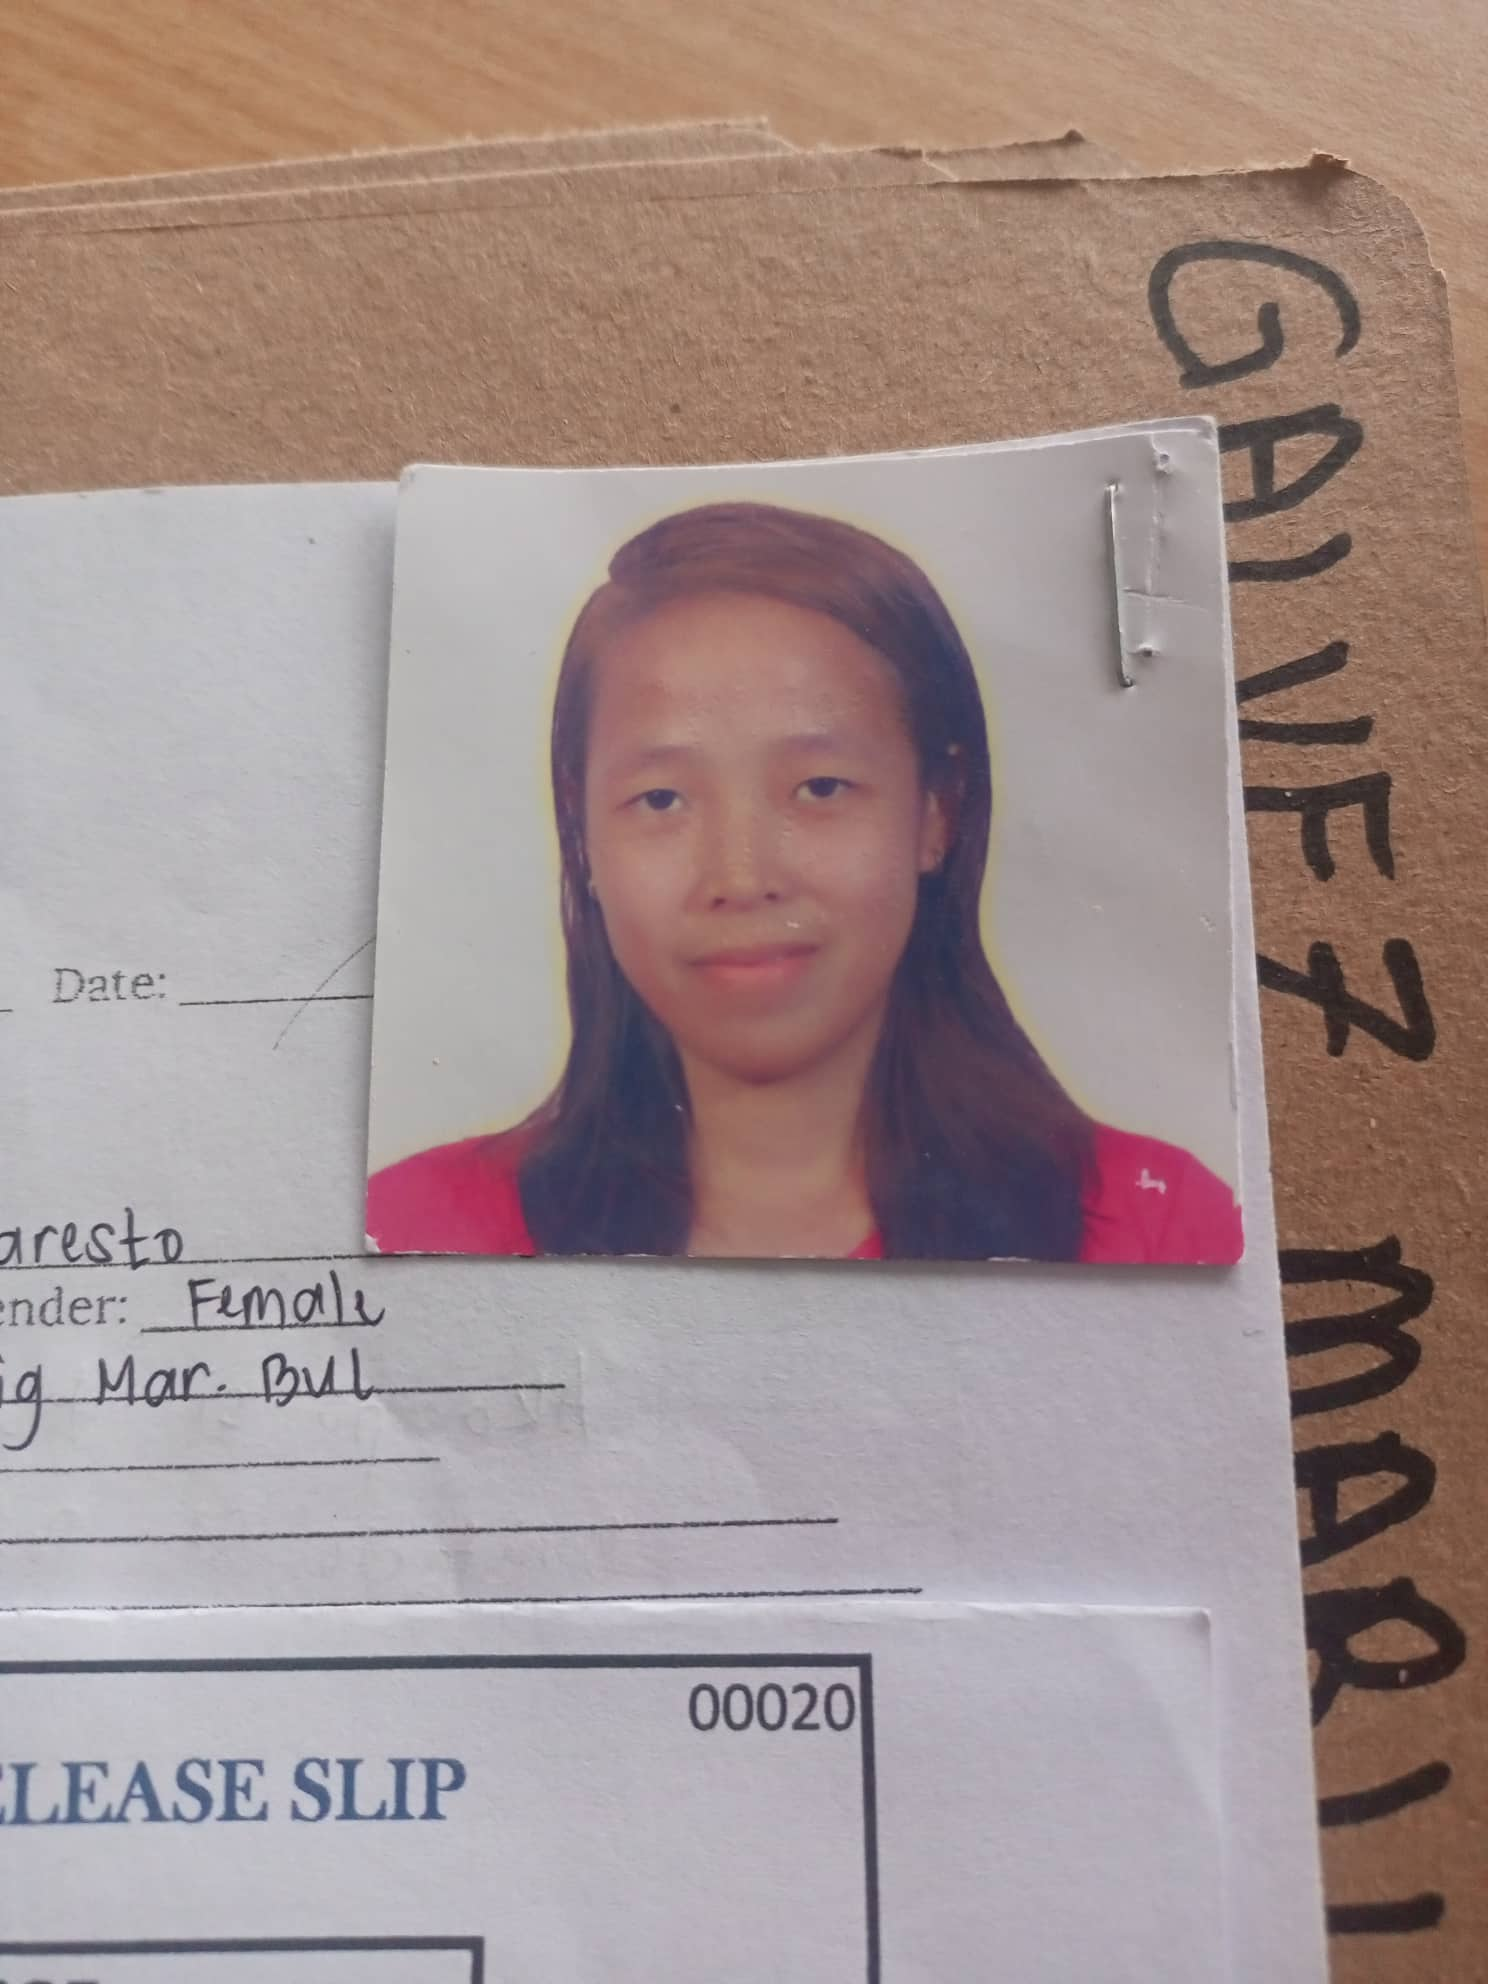 GALVEZ MARIL
Date:
aresto
ender: Female
ig Mar. Bul
00020
ELEASE SLIP